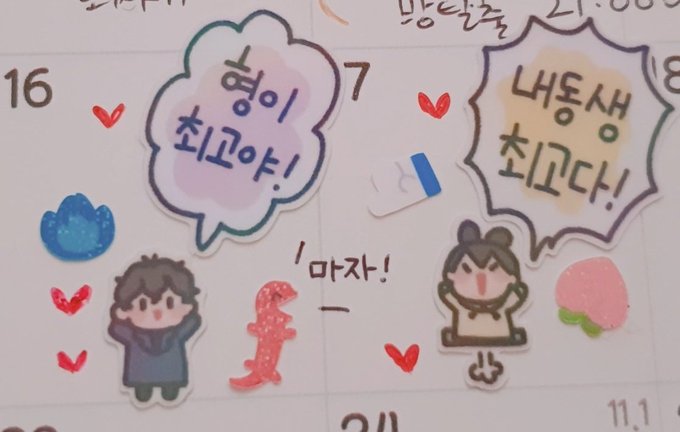 망탈출
16
7
18
형이
최고야!
내동생
최고다!
마자!
24
11.1